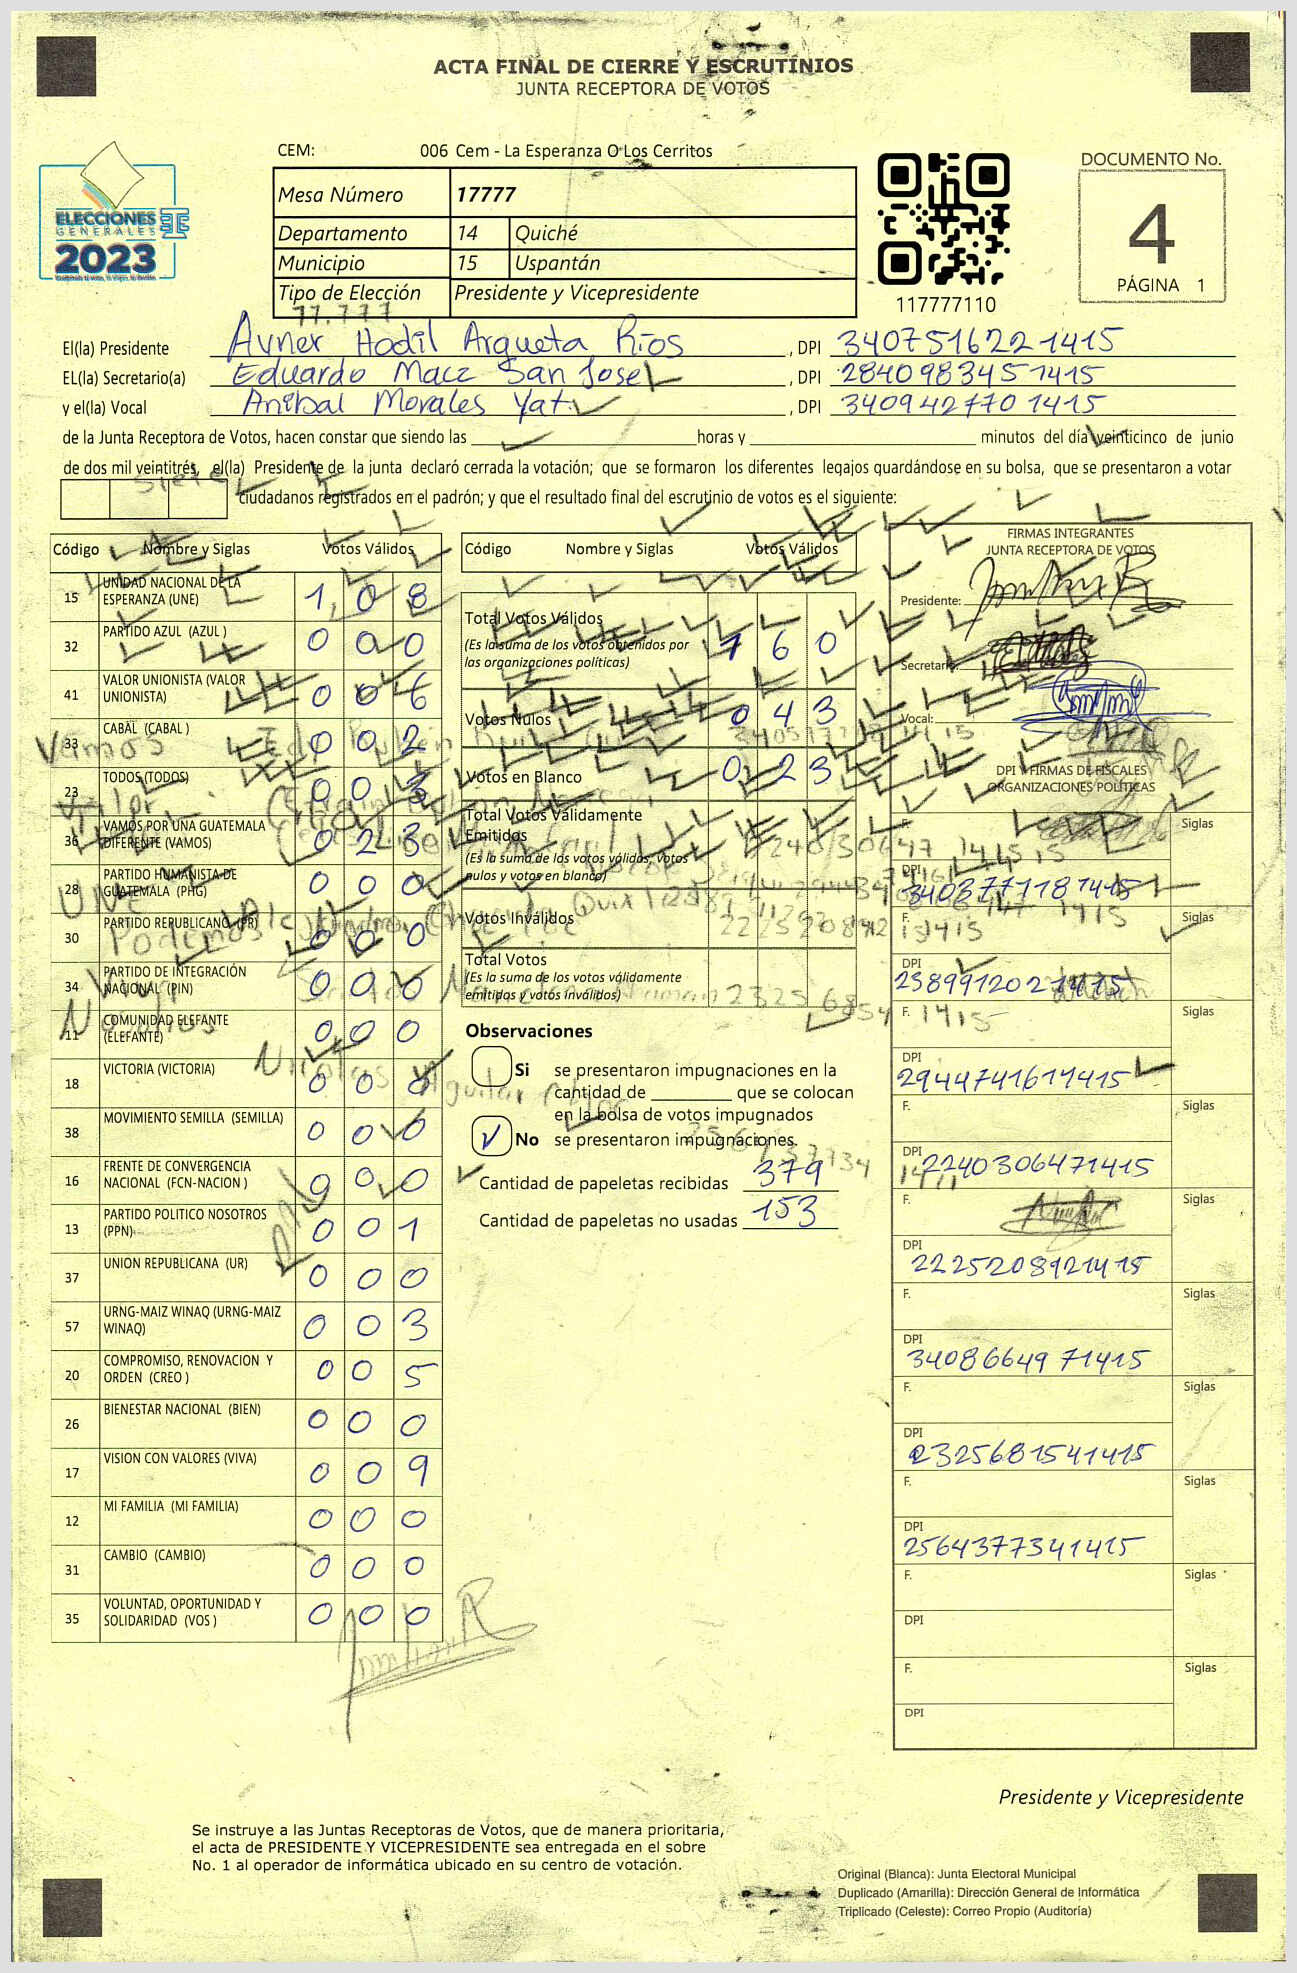 ACTA FINAL DE CIERRE Y ESCRUTINIOS
JUNTA RECEPTORA DE VOTOS
CEM: 006 Cem - La Esperanza O Los Cerritos
ELECCIONES
GENERALES
2023
Mesa Número 17777
Departamento 14 Quiché
Municipio 15 Uspantán
Tipo de Elección Presidente y Vicepresidente
117777110
DOCUMENTO No.
4
PÁGINA 1
El(la) Presidente Avner Hodil Argueta Ríos, DPI 3407516221415
EL(la) Secretario(a) Eduardo Macz San Jose, DPI 2840983451415
y el(la) Vocal Anibal Morales Yat, DPI 3409427701415
de la Junta Receptora de Votos, hacen constar que siendo las horas y minutos del día veinticinco de junio
de dos mil veintitrés, el(la) Presidente de la junta declaró cerrada la votación; que se formaron los diferentes legajos guardándose en su bolsa, que se presentaron a votar
siete
ciudadanos registrados en el padrón; y que el resultado final del escrutinio de votos es el siguiente:
Código Nombre y Siglas Votos Válidos
15 UNIDAD NACIONAL DE LA ESPERANZA (UNE) 1 0 8
32 PARTIDO AZUL (AZUL ) 0 0 0
41 VALOR UNIONISTA (VALOR UNIONISTA) 0 0 6
33 CABAL (CABAL ) 0 0 2
23 TODOS (TODOS) 0 0 3
36 VAMOS POR UNA GUATEMALA DIFERENTE (VAMOS) 0 2 3
28 PARTIDO HUMANISTA DE GUATEMALA (PHG) 0 0 0
30 PARTIDO REPUBLICANO (PR) 0 0 0
34 PARTIDO DE INTEGRACIÓN NACIONAL (PIN) 0 0 0
11 COMUNIDAD ELEFANTE (ELEFANTE) 0 0 0
18 VICTORIA (VICTORIA) 0 0 0
38 MOVIMIENTO SEMILLA (SEMILLA) 0 0 0
16 FRENTE DE CONVERGENCIA NACIONAL (FCN-NACION ) 0 0 0
13 PARTIDO POLITICO NOSOTROS (PPN) 0 0 1
37 UNION REPUBLICANA (UR) 0 0 0
57 URNG-MAIZ WINAQ (URNG-MAIZ WINAQ) 0 0 3
20 COMPROMISO, RENOVACION Y ORDEN (CREO ) 0 0 5
26 BIENESTAR NACIONAL (BIEN) 0 0 0
17 VISION CON VALORES (VIVA) 0 0 9
12 MI FAMILIA (MI FAMILIA) 0 0 0
31 CAMBIO (CAMBIO) 0 0 0
35 VOLUNTAD, OPORTUNIDAD Y SOLIDARIDAD (VOS ) 0 0 0
Vamos
Valor
UNE
Podemos
Código Nombre y Siglas Votos Válidos
Total Votos Válidos 1 6 0
(Es la suma de los votos obtenidos por
las organizaciones políticas)
Votos Nulos 0 4 3
Votos en Blanco 0 2 3
Total Votos Válidamente
Emitidos
(Es la suma de los votos válidos, votos
nulos y votos en blanco)
Votos Inválidos
Total Votos
(Es la suma de los votos válidamente
emitidos y votos inválidos)
Nicolas Aguilar
Observaciones
Si se presentaron impugnaciones en la
cantidad de que se colocan
en la bolsa de votos impugnados
No se presentaron impugnaciones.
Cantidad de papeletas recibidas 379
Cantidad de papeletas no usadas 153
FIRMAS INTEGRANTES
JUNTA RECEPTORA DE VOTOS
Presidente:
Secretario:
Vocal:
DPI Y FIRMAS DE FISCALES
ORGANIZACIONES POLÍTICAS
F. Siglas
DPI 3403771181415
F. Siglas
DPI 2389912021415
F. Siglas
DPI 2944741611415
F. Siglas
DPI 2240306471415
F. Siglas
DPI 2225208921415
F. Siglas
DPI 3408664971415
F. Siglas
DPI 2325681541415
F. Siglas
DPI 2564377341415
F. Siglas
DPI
F. Siglas
DPI
Presidente y Vicepresidente
Se instruye a las Juntas Receptoras de Votos, que de manera prioritaria,
el acta de PRESIDENTE Y VICEPRESIDENTE sea entregada en el sobre
No. 1 al operador de informática ubicado en su centro de votación.
Original (Blanca): Junta Electoral Municipal
Duplicado (Amarilla): Dirección General de Informática
Triplicado (Celeste): Correo Propio (Auditoría)